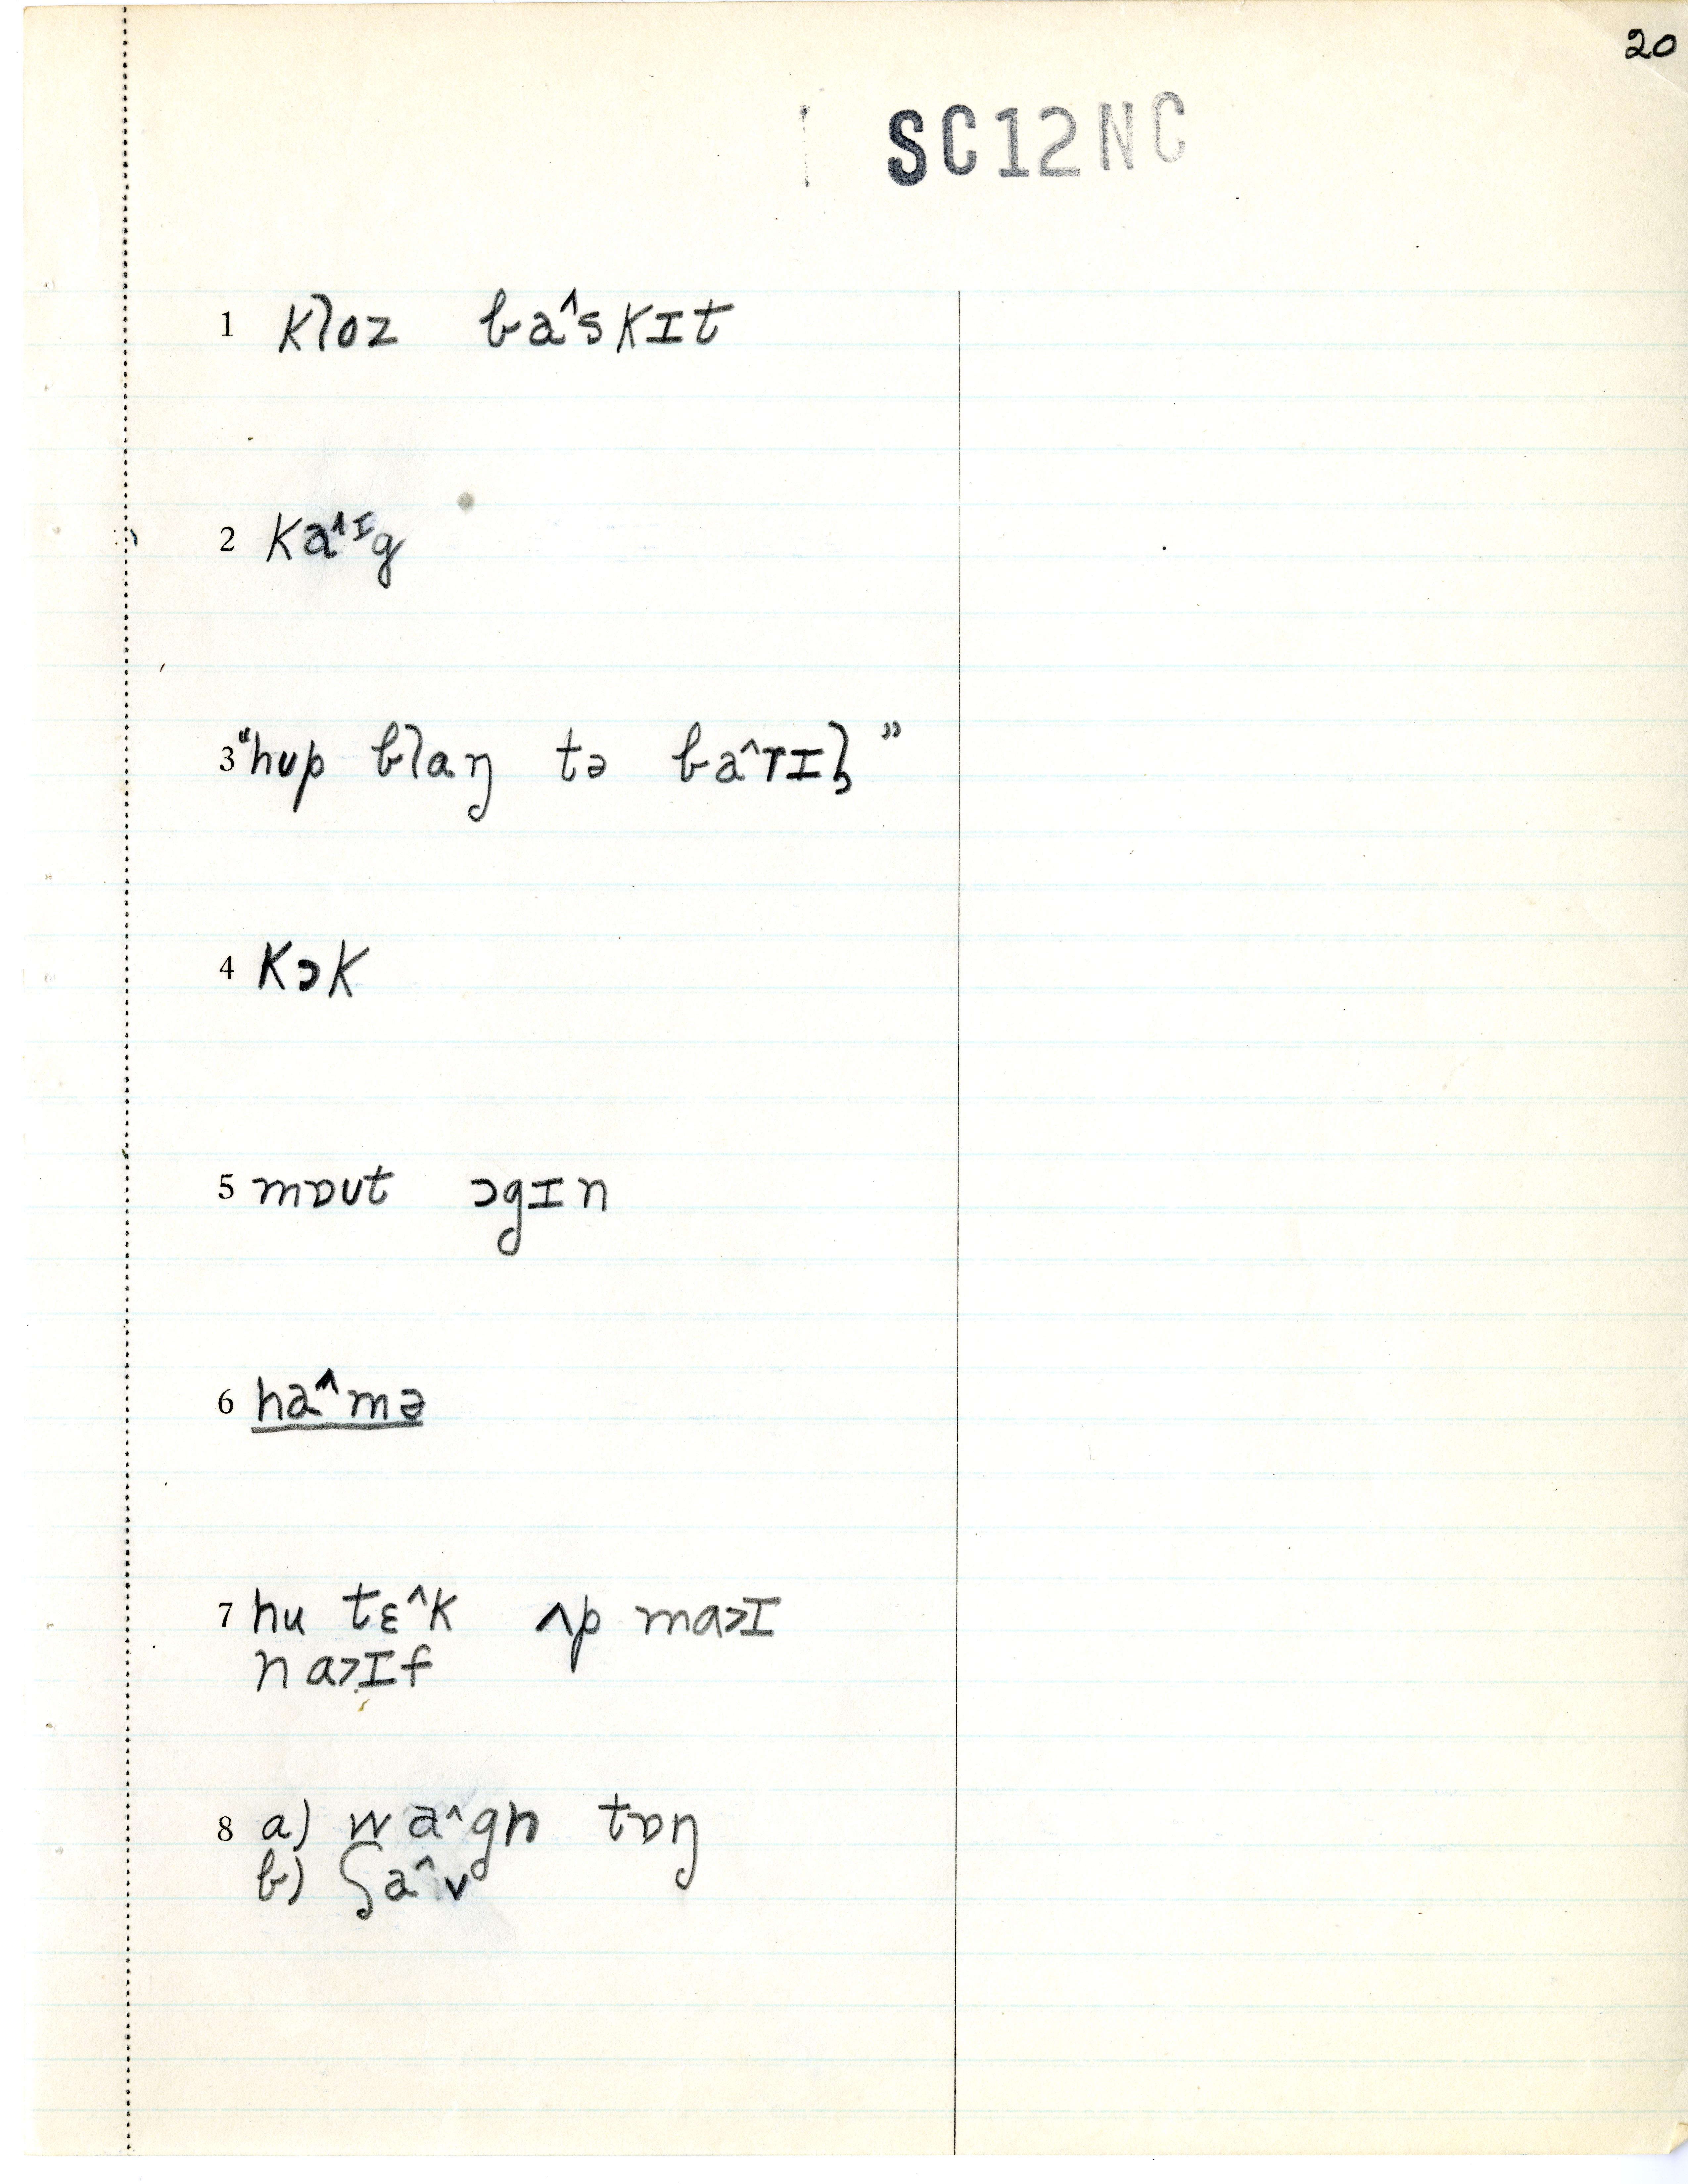 20
SC12NC
1 kloz ba^skɪt
2 ka^ɪg
3 "hup blaŋ tə ba^rɪl̥"
4 kɔk
5 mɒut ɔgɪn
6 ha^mə
7 hu tɛ^k ʌp ma>ɪ
na>ɪf
8 a) wa^gn tɒŋ
b) ʃa^v